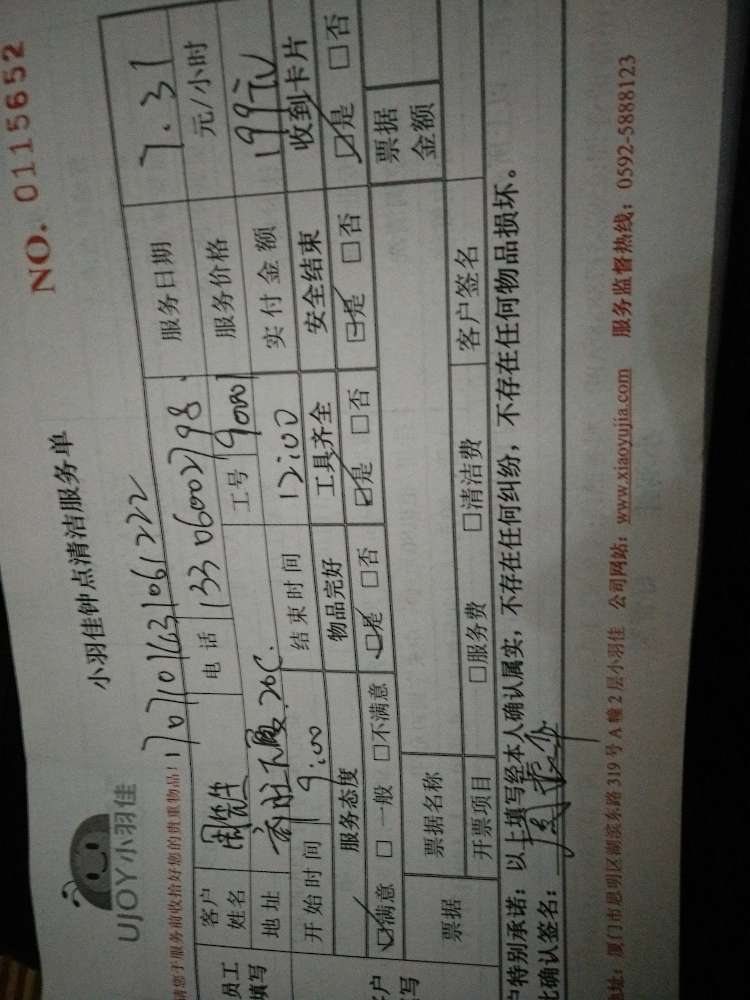 NO. 0115652
UJOY小羽佳
小羽佳钟点清洁服务单
请您于服务前收拾好您的贵重物品!
服务日期 7.31
员工填写
客户姓名
电话 13306002798
服务价格 元/小时
地址 20C
工号 9000
实付金额 199元
开始时间 9:00
结束时间 12:00
服务态度 物品完好 工具齐全 安全结束 收到卡片
☑满意 □一般 □不满意 ☑是 □否 ☑是 □否 ☑是 □否 ☑是 □否
票据
票据名称
票据金额
开票项目 □服务费 □清洁费 客户签名
户特别承诺:以上填写经本人确认属实,不存在任何纠纷,不存在任何物品损坏。
此确认签名:
地址:厦门市思明区湖滨东路319号A幢2层小羽佳 公司网站:www.xiaoyujia.com 服务监督热线:0592-5888123